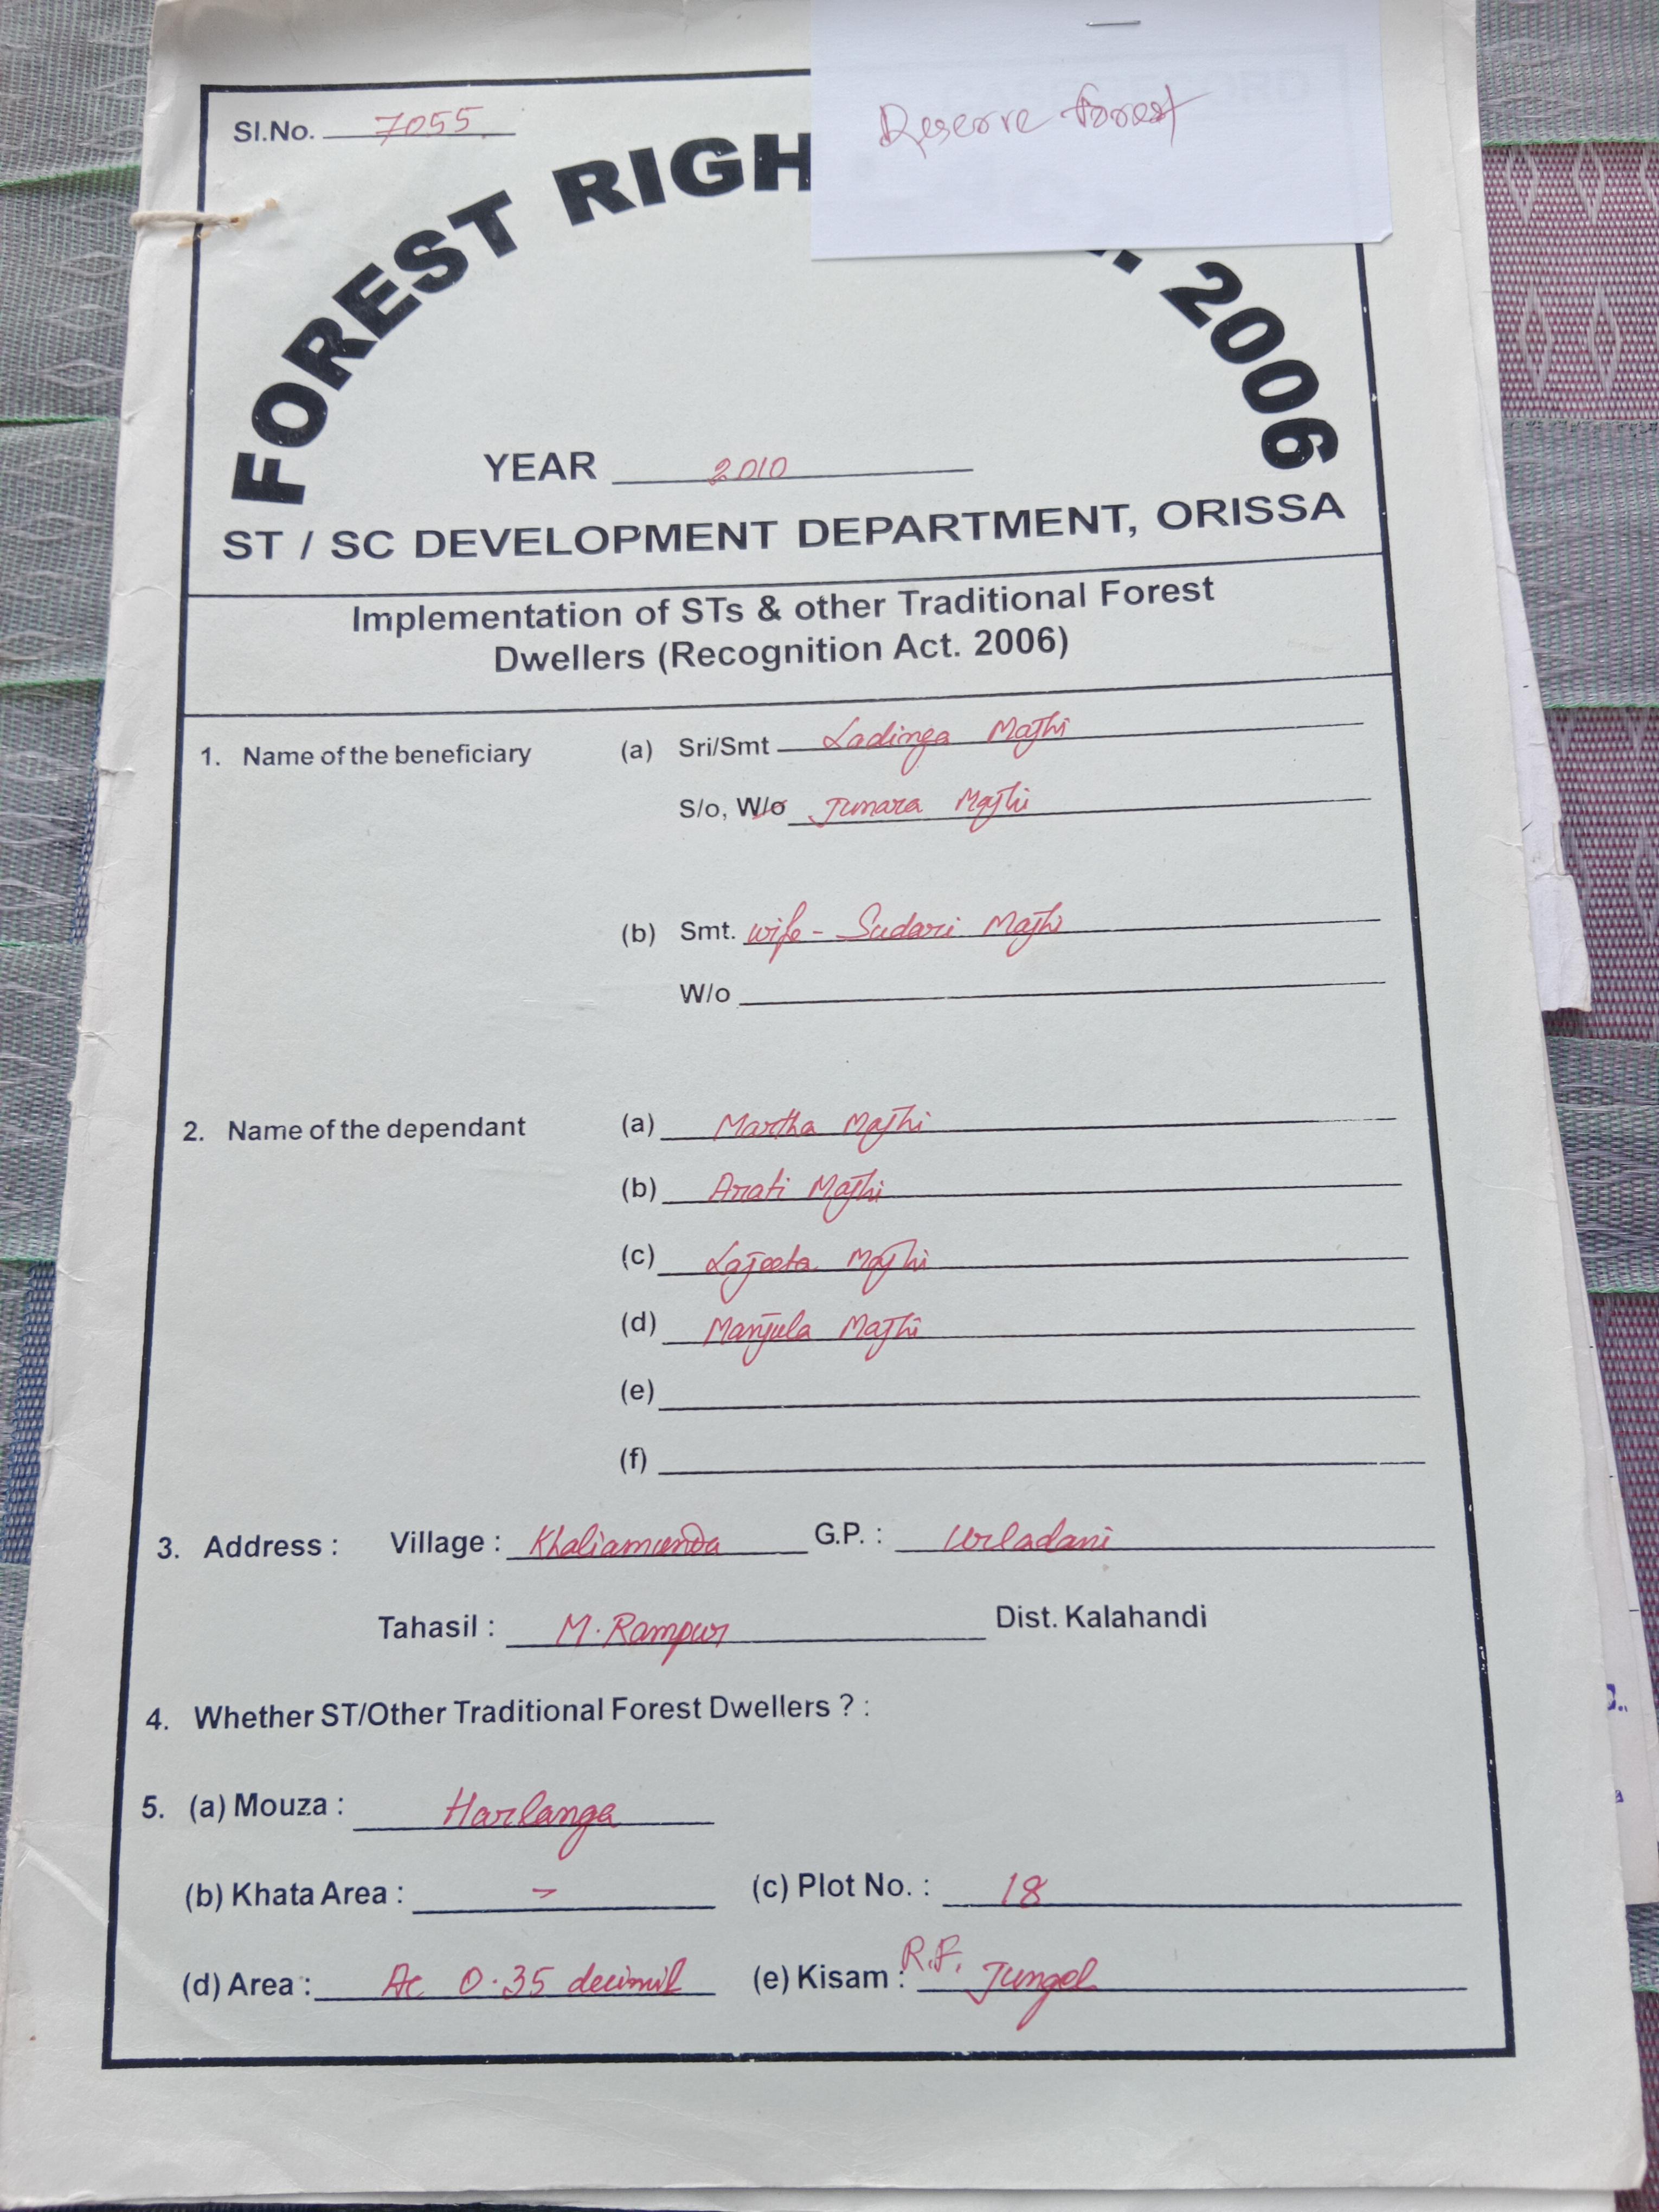 Reserve forest
Sl.No. 7055
FOREST RIGH 2006
YEAR 2010
ST / SC DEVELOPMENT DEPARTMENT, ORISSA
Implementation of STs & other Traditional Forest
Dwellers (Recognition Act. 2006)
1. Name of the beneficiary (a) Sri/Smt Ladinga Majhi
S/o, W/o Jumara Majhi
(b) Smt. wife - Sudari Majhi
W/o
2. Name of the dependant (a) Martha Majhi
(b) Arati Majhi
(c) Lajeeta Majhi
(d) Manjula Majhi
(e)
(f)
3. Address : Village : Khaliamunda G.P. : Urladani
Tahasil : M. Rampur Dist. Kalahandi
4. Whether ST/Other Traditional Forest Dwellers ? :
5. (a) Mouza : Harlanga
(b) Khata Area : - (c) Plot No. : 18
(d) Area : Ac 0.35 decimil (e) Kisam : R.F. Jungel